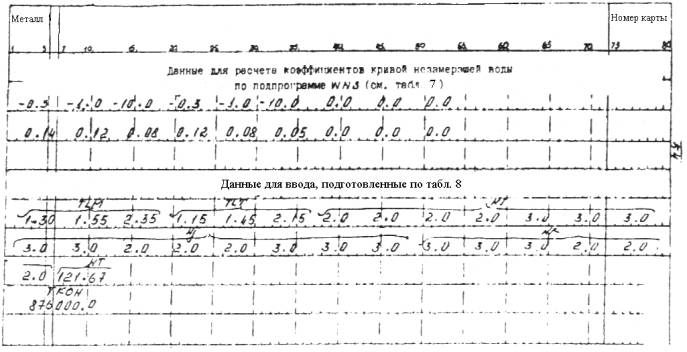 Металл Номер карты
1 5 7 10 15 20 25 30 35 40 45 50 55 60 65 70 73 80
Данные для расчета коэффициентов кривой незамерзшей воды
по подпрограмме WNS (см. табл 7)
-0.3 -1.0 -10.0 -0.3 -1.0 -10.0 0.0 0.0 0.0
0.14 0.12 0.08 0.12 0.08 0.05 0.0 0.0 0.0
Данные для ввода, подготовленные по табл. 8
TLM TLT
1.30 1.55 2.35 1.15 1.45 2.15 2.0 2.0 2.0 2.0 3.0 3.0 3.0
3.0 3.0 2.0 2.0 2.0 3.0 3.0 3.0 3.0 3.0 3.0 2.0 2.0
НТ
2.0 121.67
ТКОН
876000.0